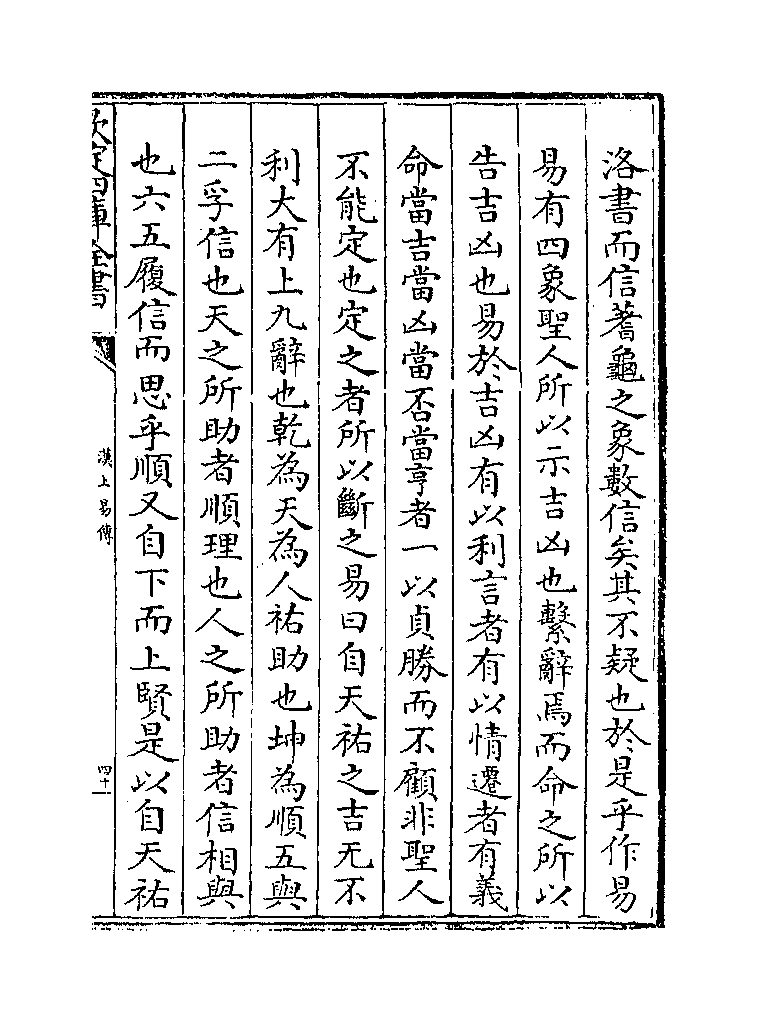 洛書而信蓍龜之象數信矣其不疑也於是乎作易
易有四象聖人所以示吉凶也繫辭焉而命之所以
告吉凶也易於吉凶有以利言者有以情遷者有義
命當吉當凶當否當亨者一以貞勝而不顧非聖人
不能定也定之者所以斷之易曰自天祐之吉无不
利大有上九辭也乾為天為人祐助也坤為順五與
二孚信也天之所助者順理也人之所助者信相與
也六五履信而思乎順又自下而上賢是以自天祐
欽定四庫全書
漢上易傳
四十